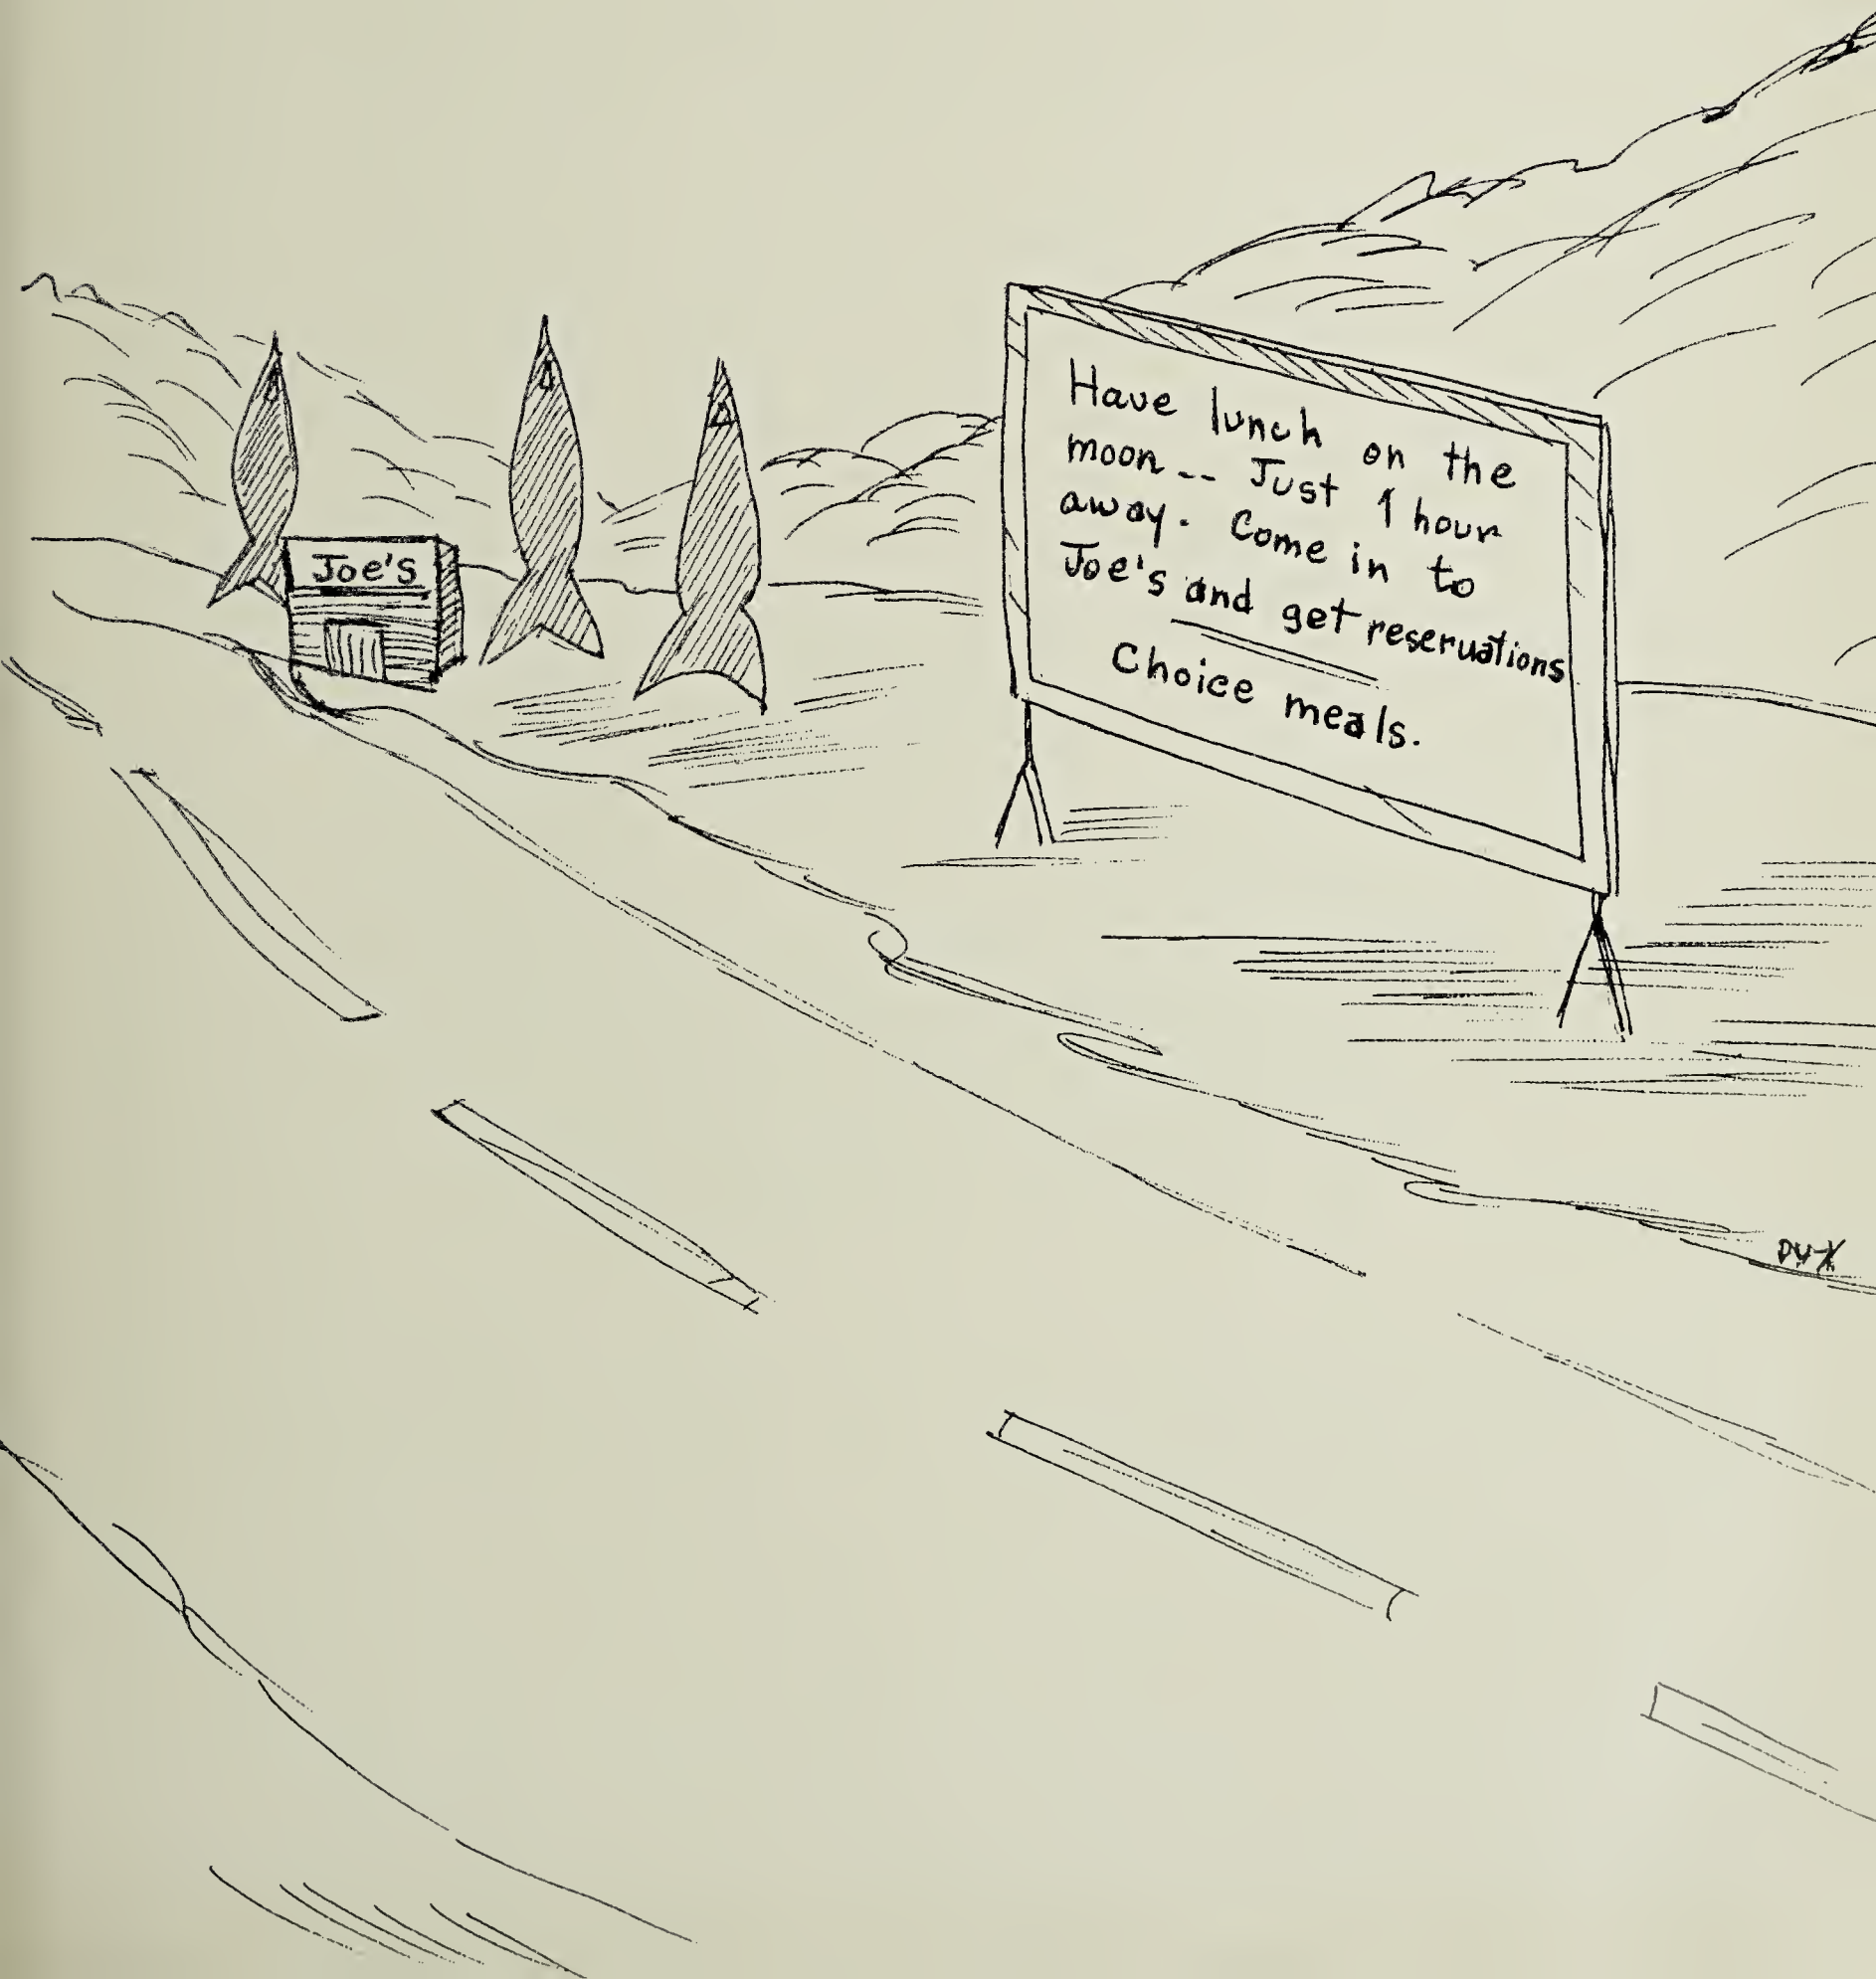 Joe's
Have lunch on the
moon-- Just 1 hour
away. Come in to
Joe's and get reservations
Choice meals.